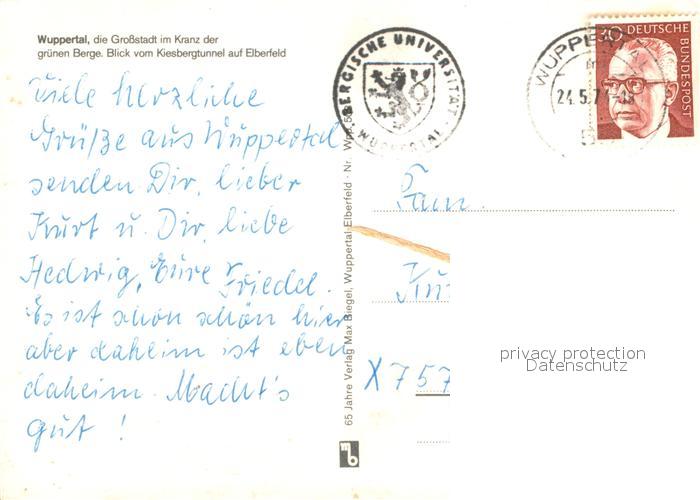 Wuppertal, die Großstadt im Kranz der
grünen Berge. Blick vom Kiesbergtunnel auf Elberfeld
Viele herzliche
Grüße aus Wuppertal
senden Dir, lieber
Kurt u. Dir, liebe
Hedwig, Eure Friedel.
Es ist schon schön hier
aber daheim ist eben
daheim. Macht's
gut!
65 Jahre Verlag Max Biegel, Wuppertal-Elberfeld · Nr.
mb
BERGISCHE UNIVERSITÄT
WUPPERTAL
WUPPERTAL
24.5.7
30 DEUTSCHE
BUNDESPOST
Fam.
X 757
privacy protection
Datenschutz